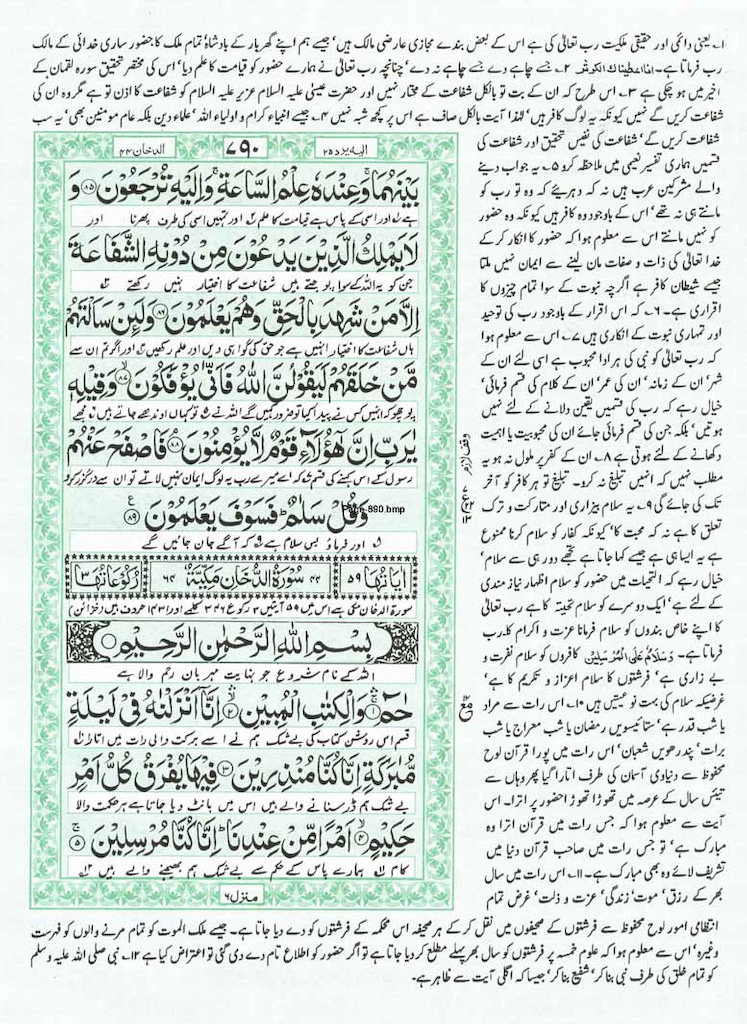 ۱۔ یعنی دائمی اور حقیقی ملکیت رب تعالیٰ کی ہے اس کے بعض بندے مجازی عارضی مالک ہیں‘ جیسے ہم اپنے گھر بار کے بادشاہ تمام ملک کا حضور ساری خدائی کے مالک
رب فرماتا ہے۔ انا اعطینک الکوثر ۲۔ جسے چاہے دے جسے چاہے نہ دے‘ چنانچہ رب تعالیٰ نے ہمارے حضور کو قیامت کا علم دیا‘ اس کی مختصر تحقیق سورہ لقمان کے
اخیر میں ہو چکی ہے ۳۔ اس طرح کہ ان کے بت تو بالکل شفاعت کے مختار نہیں اور حضرت عیسیٰ علیہ السلام عزیر علیہ السلام کو شفاعت کا اذن تو ہے مگر وہ ان کی
شفاعت کریں گے نہیں کیونکہ یہ لوگ کافر ہیں‘ لہٰذا آیت بالکل صاف ہے اس پر کچھ شبہ نہیں ۴۔ جیسے انبیاء کرام و اولیاء اللہ‘ علماء دین بلکہ عام مومنین بھی‘ یہ سب
شفاعت کریں گے‘ شفاعت کی نفیس تحقیق اور شفاعت کی
قسمیں ہماری تفسیر نعیمی میں ملاحظہ کرو ۵۔ یہ جواب دینے
والے مشرکین عرب ہیں نہ کہ دہریئے کہ وہ تو رب کو
مانتے ہی نہ تھے‘ اس کے باوجود وہ کافر ہیں کیونکہ وہ حضور
کو نہیں مانتے اس سے معلوم ہوا کہ حضور کا انکار کر کے
خدا تعالیٰ کی ذات و صفات مان لینے سے ایمان نہیں ملتا
جیسے شیطان کافر ہے اگرچہ نبوت کے سوا تمام چیزوں کا
اقراری ہے۔ ۶۔ کہ اس اقرار کے باوجود رب کی توحید
اور تمہاری نبوت کے انکاری ہیں ۷۔ اس سے معلوم ہوا
کہ رب تعالیٰ کو نبی کی ہر ادا محبوب ہے اسی لئے ان کے
شہر‘ ان کے زمانہ‘ ان کی عمر‘ ان کے کلام کی قسم فرمائی‘
خیال رہے کہ رب کی قسمیں یقین دلانے کے لئے نہیں
ہوتیں‘ بلکہ جن کی قسم فرمائی جائے ان کی محبوبیت یا اہمیت
دکھانے کے لئے ہوتی ہے ۸۔ ان کے کفر پر ملول نہ ہو یہ
مطلب نہیں کہ انہیں تبلیغ نہ کرو۔ تبلیغ تو ہر کافر کو آخر
تک کی جائے گی ۹۔ یہ سلام بیزاری اور متارکت و ترک
تعلق کا ہے نہ کہ محبت کا‘ کیونکہ کفار کو سلام کرنا ممنوع
ہے یہ ایسا ہی ہے جیسے کہا جاتا ہے تجھے دور ہی سے سلام‘
خیال رہے کہ التحیات میں حضور کو سلام اظہار نیاز مندی
کے لئے ہے‘ ایک دوسرے کو سلام تحیتہ کا ہے رب تعالیٰ
کا اپنے خاص بندوں کو سلام فرمانا عزت و اکرام کا۔ رب
فرماتا ہے۔ وسلام علی المرسلین کافروں کو سلام نفرت و
بے زاری ہے‘ فرشتوں کا سلام اعزاز و تکریم کا ہے‘
غرضیکہ سلام کی بہت نوعیتیں ہیں ۱۰۔ اس رات سے مراد
یا شب قدر ہے‘ ستائیسویں رمضان یا شب معراج یا شب
برات‘ پندرھویں شعبان‘ اس رات میں پورا قرآن لوح
محفوظ سے دنیاوی آسمان کی طرف اتارا گیا پھر وہاں سے
تیئس سال کے عرصہ میں تھوڑا تھوڑا حضور پر اترا۔ اس
آیت سے معلوم ہوا کہ جس رات میں قرآن اترا وہ
مبارک ہے‘ تو جس رات میں صاحب قرآن دنیا میں
تشریف لائے وہ بھی مبارک ہے۔ ۱۱۔ اس رات میں سال
بھر کے رزق‘ موت‘ زندگی‘ عزت و ذلت‘ غرض تمام
انتظامی امور لوح محفوظ سے فرشتوں کے صحیفوں میں نقل کر کے ہر صحیفہ اس محکمہ کے فرشتوں کو دے دیا جاتا ہے۔ جیسے ملک الموت کو تمام مرنے والوں کو فہرست
وغیرہ‘ اس سے معلوم ہوا کہ علوم خمسہ پر فرشتوں کو سال بھر پہلے مطلع کر دیا جاتا ہے تو اگر حضور کو اطلاع تام دے دی گئی تو اعتراض کیا ہے ۱۲۔ نبی صلی اللہ علیہ و سلم
کو تمام خلق کی طرف نبی بنا کر‘ شفیع بنا کر‘ جیسا کہ اگلی آیت سے ظاہر ہے۔
الیہ یرد ۲۵
۷۹۰
الدخان ۴۴
بَيْنَهُمَا وَعِنْدَهٗ عِلْمُ السَّاعَةِ وَاِلَيْهِ تُرْجَعُوْنَ ۝۸۵ وَ
ہے اور اسی کے پاس ہے قیامت کا علم اور تمہیں اسی کی طرف پھرنا اور
لَا يَمْلِكُ الَّذِيْنَ يَدْعُوْنَ مِنْ دُوْنِهِ الشَّفَاعَةَ
جن کو یہ اللہ کے سوا پوجتے ہیں شفاعت کا اختیار نہیں رکھتے
اِلَّا مَنْ شَهِدَ بِالْحَقِّ وَهُمْ يَعْلَمُوْنَ ۝۸۶ وَلَىِٕنْ سَاَلْتَهُمْ
ہاں شفاعت کا اختیار انہیں ہے جو حق کی گواہی دیں اور علم رکھیں اور اگر تم ان سے
مَّنْ خَلَقَهُمْ لَيَقُوْلُنَّ اللّٰهُ فَاَنّٰى يُؤْفَكُوْنَ ۝۸۷ وَقِيْلِهٖ
پوچھو کہ انہیں کس نے پیدا کیا تو ضرور کہیں گے اللہ نے تو کہاں اوندھے جاتے ہیں مجھے
يٰرَبِّ اِنَّ هٰٓؤُلَآءِ قَوْمٌ لَّا يُؤْمِنُوْنَ ۝۸۸ فَاصْفَحْ عَنْهُمْ
رسول کے اس کہنے کی قسم کہ اے میرے رب یہ لوگ ایمان نہیں لاتے تو ان سے درگزر کرو
وَقُلْ سَلٰمٌ فَسَوْفَ يَعْلَمُوْنَ ۝۸۹
Page-890.bmp
اور فرماؤ بس سلام ہے کہ آگے جان جائیں گے
اٰيَاتُهَا ۵۹ ۴۴ سُوْرَةُ الدُّخَانِ مَكِّيَّةٌ ۶۴ رُكُوْعَاتُهَا ۳
سورۃ الدخان مکی ہے اس میں ۵۹ آیتیں ۳ رکوع ۳۴۶ کلمے اور ۱۴۳۱ حروف ہیں (خزائن)
بِسْمِ اللّٰهِ الرَّحْمٰنِ الرَّحِيْمِ
اللہ کے نام سے شروع جو نہایت مہربان رحم والا ہے
حٰمٓ ۝۱ وَالْكِتٰبِ الْمُبِيْنِ ۝۲ اِنَّآ اَنْزَلْنٰهُ فِيْ لَيْلَةٍ
قسم اس روشن کتاب کی بے شک ہم نے اسے برکت والی رات میں اتارا
مُّبٰرَكَةٍ اِنَّا كُنَّا مُنْذِرِيْنَ ۝۳ فِيْهَا يُفْرَقُ كُلُّ اَمْرٍ
بے شک ہم ڈر سنانے والے ہیں اس میں بانٹ دیا جاتا ہے ہر حکمت والا
حَكِيْمٍ ۝۴ اَمْرًا مِّنْ عِنْدِنَا اِنَّا كُنَّا مُرْسِلِيْنَ ۝۵
کام ہمارے پاس کے حکم سے بے شک ہم بھیجنے والے ہیں
منزل ۶
وقف لازم